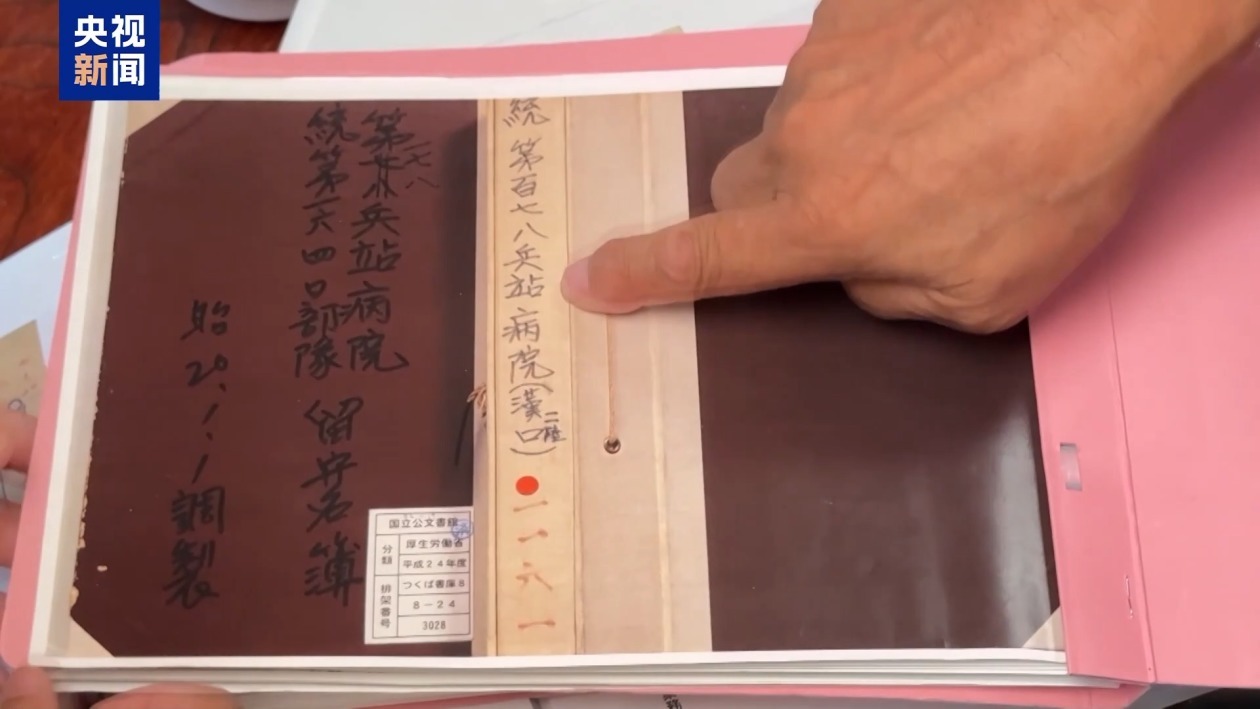 央视
新闻
統 第百七八兵站病院(漢口二陸)
一一六一
一七八
第兵站病院
統第一六四〇部隊 留守名簿
昭20.1.1調製
国立公文書館
分類
厚生労働省
平成24年度
排架番号
つくば書庫8
8-24
3028